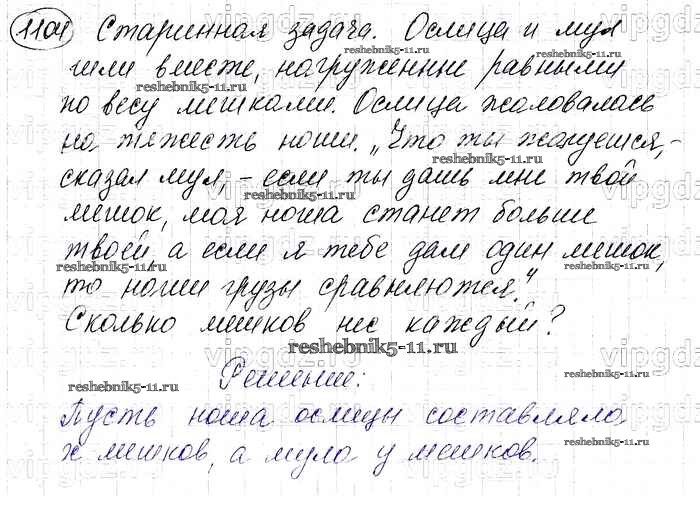 1104 Старинная задача. Ослица и мул
шли вместе, нагруженные равными
по весу мешками. Ослица жаловалась
на тяжесть ноши. „Что ты жалуешся,-
сказал мул, - если ты дашь мне твой
мешок, моя ноша станет больше
твоей, а если я тебе дам один мешок,
то наши грузы сравняются."
Сколько мешков нес каждый?
Решение:
Пусть ноша ослицы составляла
x мешков, а мула y мешков.
reshebnik5-11.ru
reshebnik5-11.ru
reshebnik5-11.ru
reshebnik5-11.ru
reshebnik5-11.ru
reshebnik5-11.ru
reshebnik5-11.ru
reshebnik5-11.ru
reshebnik5-11.ru
reshebnik5-11.ru